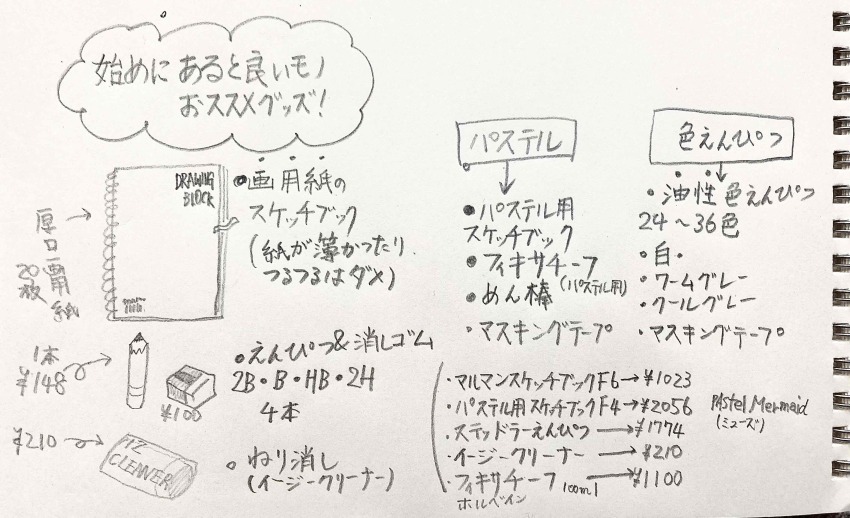 始めに あると良いモノ
おススメグッズ!
DRAWING
BLOCK
厚口画用紙
20枚
●画用紙の
スケッチブック
(紙が薄かったり
つるつるはダメ)
1本
¥148
¥100
●えんぴつ&消しゴム
2B・B・HB・2H
4本
¥210
EZ
CLEANER
●ねり消し
(イージークリーナー)
パステル
●パステル用
スケッチブック
●フィキサチーフ
(パステル用)
●めん棒
・マスキングテープ
色えんぴつ
・油性色えんぴつ
24〜36色
・白・
・ウームグレー
・クールグレー
・マスキングテープ
・マルマンスケッチブックF6→¥1023
・パステル用スケッチブックF4→¥2056
PAStel Mermaid
(ミューズ)
・ステッドラーえんぴつ→¥1774
・イージークリーナー→¥210
・フィキサチーフ 100ml→¥1100
ホルベイン